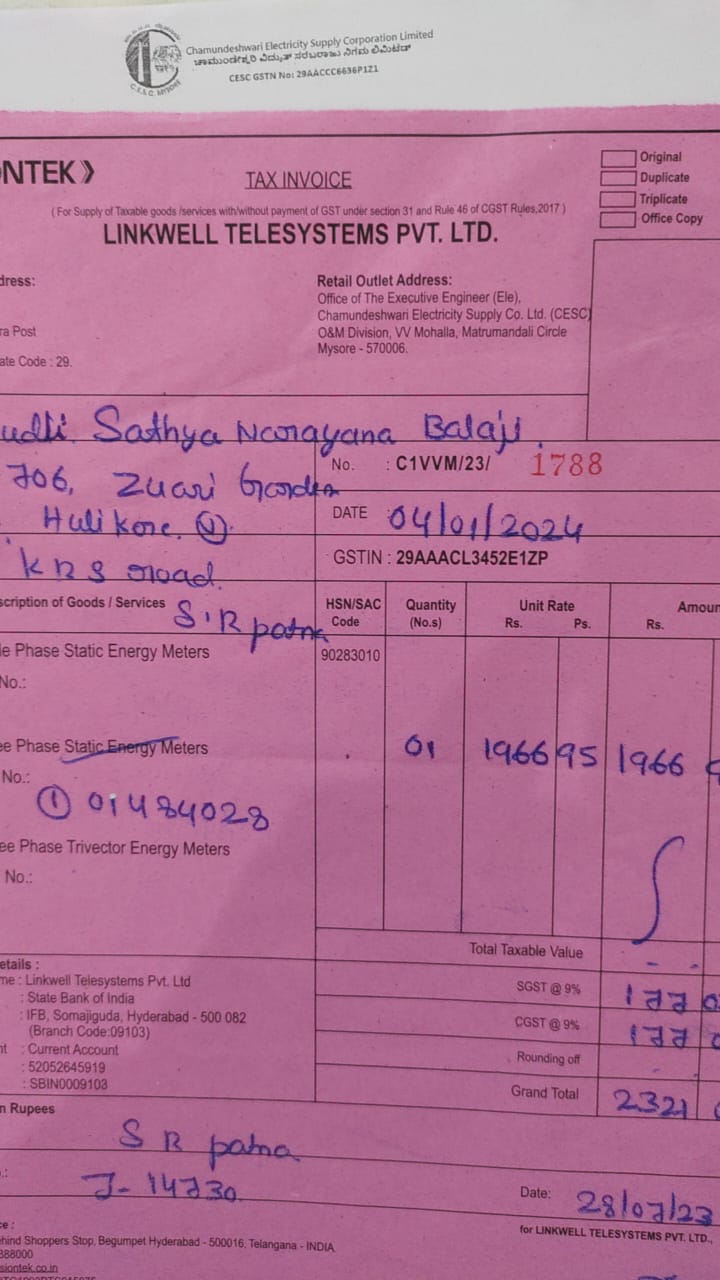 Chamundeshwari Electricity Supply Corporation Limited
ಚಾಮುಂಡೇಶ್ವರಿ ವಿದ್ಯುತ್ ಸರಬರಾಜು ನಿಗಮ ಲಿಮಿಟೆಡ್
CESC GSTN No: 29AACCC6636P1Z1
NTEK
TAX INVOICE
Original
Duplicate
Triplicate
Office Copy
( For Supply of Taxable goods /services with/without payment of GST under section 31 and Rule 46 of CGST Rules,2017 )
LINKWELL TELESYSTEMS PVT. LTD.
dress:
ra Post
ate Code : 29.
Retail Outlet Address:
Office of The Executive Engineer (Ele),
Chamundeshwari Electricity Supply Co. Ltd. (CESC)
O&M Division, VV Mohalla, Matrumandali Circle
Mysore - 570006.
Sathya Narayana Balaji
706, Zuari Garden
Hulikere (V)
KRS road
S.R patna
No. : C1VVM/23/ 1788
DATE 04/01/2024
GSTIN : 29AAACL3452E1ZP
scription of Goods / Services HSN/SAC Code Quantity (No.s) Unit Rate Rs. Ps. Amoun Rs.
le Phase Static Energy Meters 90283010
No.:
ee Phase Static Energy Meters 01 1966 95 1966
No.:
① 01484028
ee Phase Trivector Energy Meters
No.:
Total Taxable Value
SGST @ 9% 177
CGST @ 9% 177
Rounding off
Grand Total 2321
etails :
me : Linkwell Telesystems Pvt. Ltd
: State Bank of India
: IFB, Somajiguda, Hyderabad - 500 082
(Branch Code:09103)
nt : Current Account
: 52052645919
: SBIN0009103
n Rupees
S R patna
J- 14730
Date: 28/07/23
for LINKWELL TELESYSTEMS PVT. LTD.,
ce :
hind Shoppers Stop, Begumpet Hyderabad - 500016, Telangana - INDIA
388000
siontek.co.in